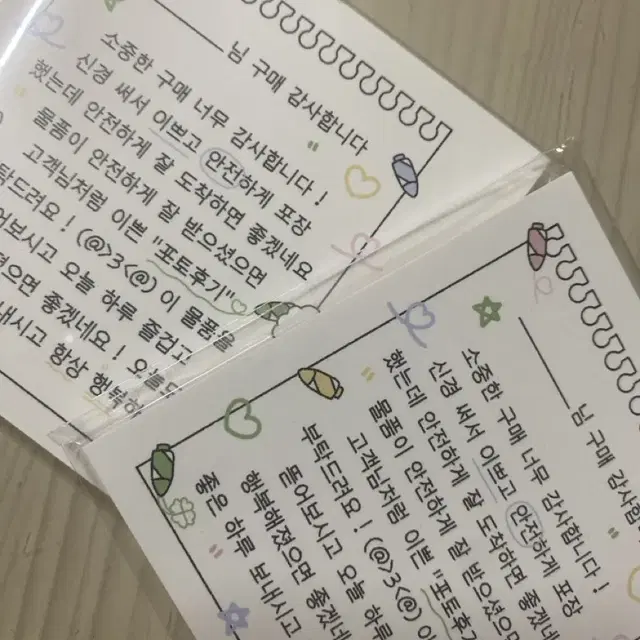 님 구매 감사합니다
소중한 구매 너무 감사합니다 !
신경 써서 이쁘고 안전하게 포장
했는데 안전하게 잘 도착하면 좋겠네요
물품이 안전하게 잘 받으셨으면
고객님처럼 이쁜 "포토후기"
드려요 ! (@>3<@) 이 물품
보시고 오늘 하루 즐겁고
으면 좋겠네요 ! 오늘
내시고 항상 행복
님 구매 감사
소중한 구매 너무 감사합니다 !
신경 써서 이쁘고 안전하게 포장
했는데 안전하게 잘 도착하면 좋겠네
물품이 안전하게 잘 받으셨으
고객님처럼 이쁜 "포토후
부탁드려요 ! (@>3<@) 이
뜯어보시고 오늘 하루
행복해졌으면 좋겠
좋은 하루 보내시고